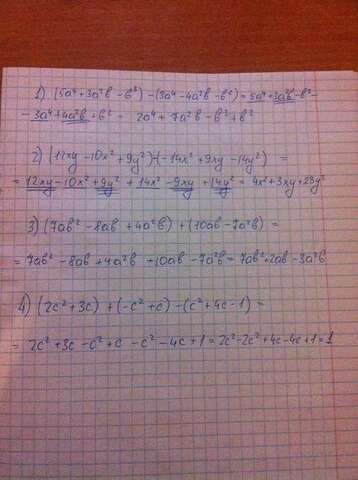 1) (5a⁴+3a²b-b³)-(3a⁴-4a²b-b²)=5a⁴+3a²b-b³-
-3a⁴+4a²b+b²= 2a⁴+7a²b-b³+b²
2) (12xy-10x²+9y²)-(-14x²+9xy-14y²) =
=12xy-10x²+9y²+14x²-9xy+14y²= 4x²+3xy+23y²
3) (7ab²-8ab+4a²b)+(10ab-7a²b)=
=7ab²-8ab+4a²b+10ab-7a²b=7ab²+2ab-3a²b
4) (2c²+3c)+(-c²+c)-(c²+4c-1)=
= 2c²+3c-c²+c-c²-4c+1=2c²-2c²+4c-4c+1=1